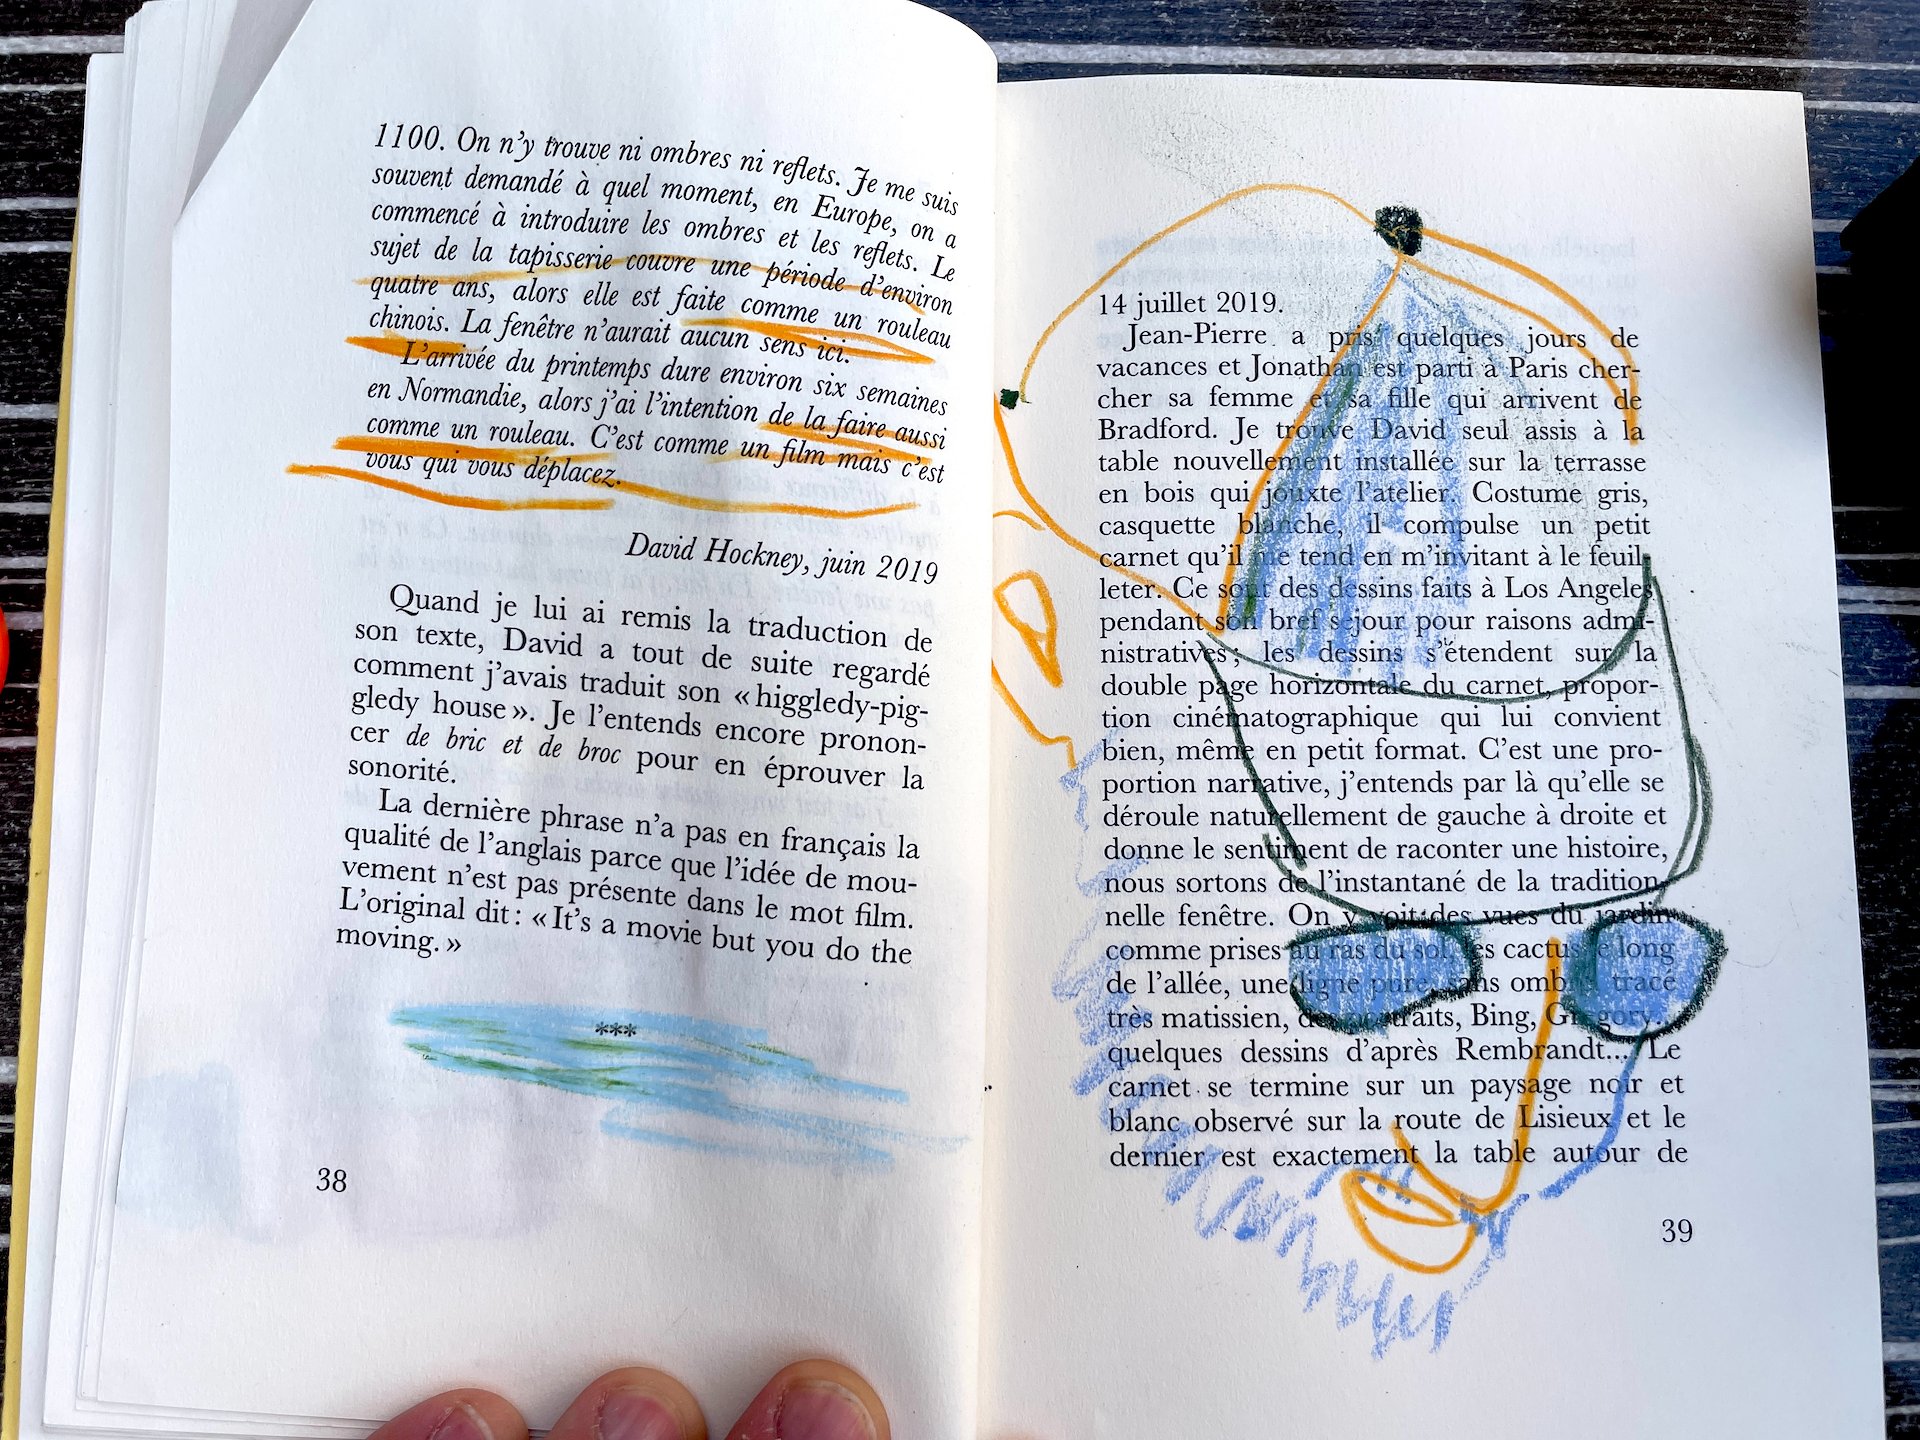 1100. On n'y trouve ni ombres ni reflets. Je me suis
souvent demandé à quel moment, en Europe, on a
commencé à introduire les ombres et les reflets. Le
sujet de la tapisserie couvre une période d'environ
quatre ans, alors elle est faite comme un rouleau
chinois. La fenêtre n'aurait aucun sens ici.
L'arrivée du printemps dure environ six semaines
en Normandie, alors j'ai l'intention de la faire aussi
comme un rouleau. C'est comme un film mais c'est
vous qui vous déplacez.
David Hockney, juin 2019
Quand je lui ai remis la traduction de
son texte, David a tout de suite regardé
comment j'avais traduit son « higgledy-pig-
gledy house ». Je l'entends encore pronon-
cer de bric et de broc pour en éprouver la
sonorité.
La dernière phrase n'a pas en français la
qualité de l'anglais parce que l'idée de mou-
vement n'est pas présente dans le mot film.
L'original dit : « It's a movie but you do the
moving. »
***
38
14 juillet 2019.
Jean-Pierre a pris quelques jours de
vacances et Jonathan est parti à Paris cher-
cher sa femme et sa fille qui arrivent de
Bradford. Je trouve David seul assis à la
table nouvellement installée sur la terrasse
en bois qui jouxte l'atelier. Costume gris,
casquette blanche, il compulse un petit
carnet qu'il me tend en m'invitant à le feuil-
leter. Ce sont des dessins faits à Los Angeles
pendant son bref séjour pour raisons admi-
nistratives ; les dessins s'étendent sur la
double page horizontale du carnet, propor-
tion cinématographique qui lui convient
bien, même en petit format. C'est une pro-
portion narrative, j'entends par là qu'elle se
déroule naturellement de gauche à droite et
donne le sentiment de raconter une histoire,
nous sortons de l'instantané de la tradition-
nelle fenêtre. On y voit des vues du jardin
comme prises au ras du sol, les cactus le long
de l'allée, une ligne pure, sans ombre, tracé
très matissien, des portraits, Bing, Gregory...
quelques dessins d'après Rembrandt... Le
carnet se termine sur un paysage noir et
blanc observé sur la route de Lisieux et le
dernier est exactement la table autour de
39